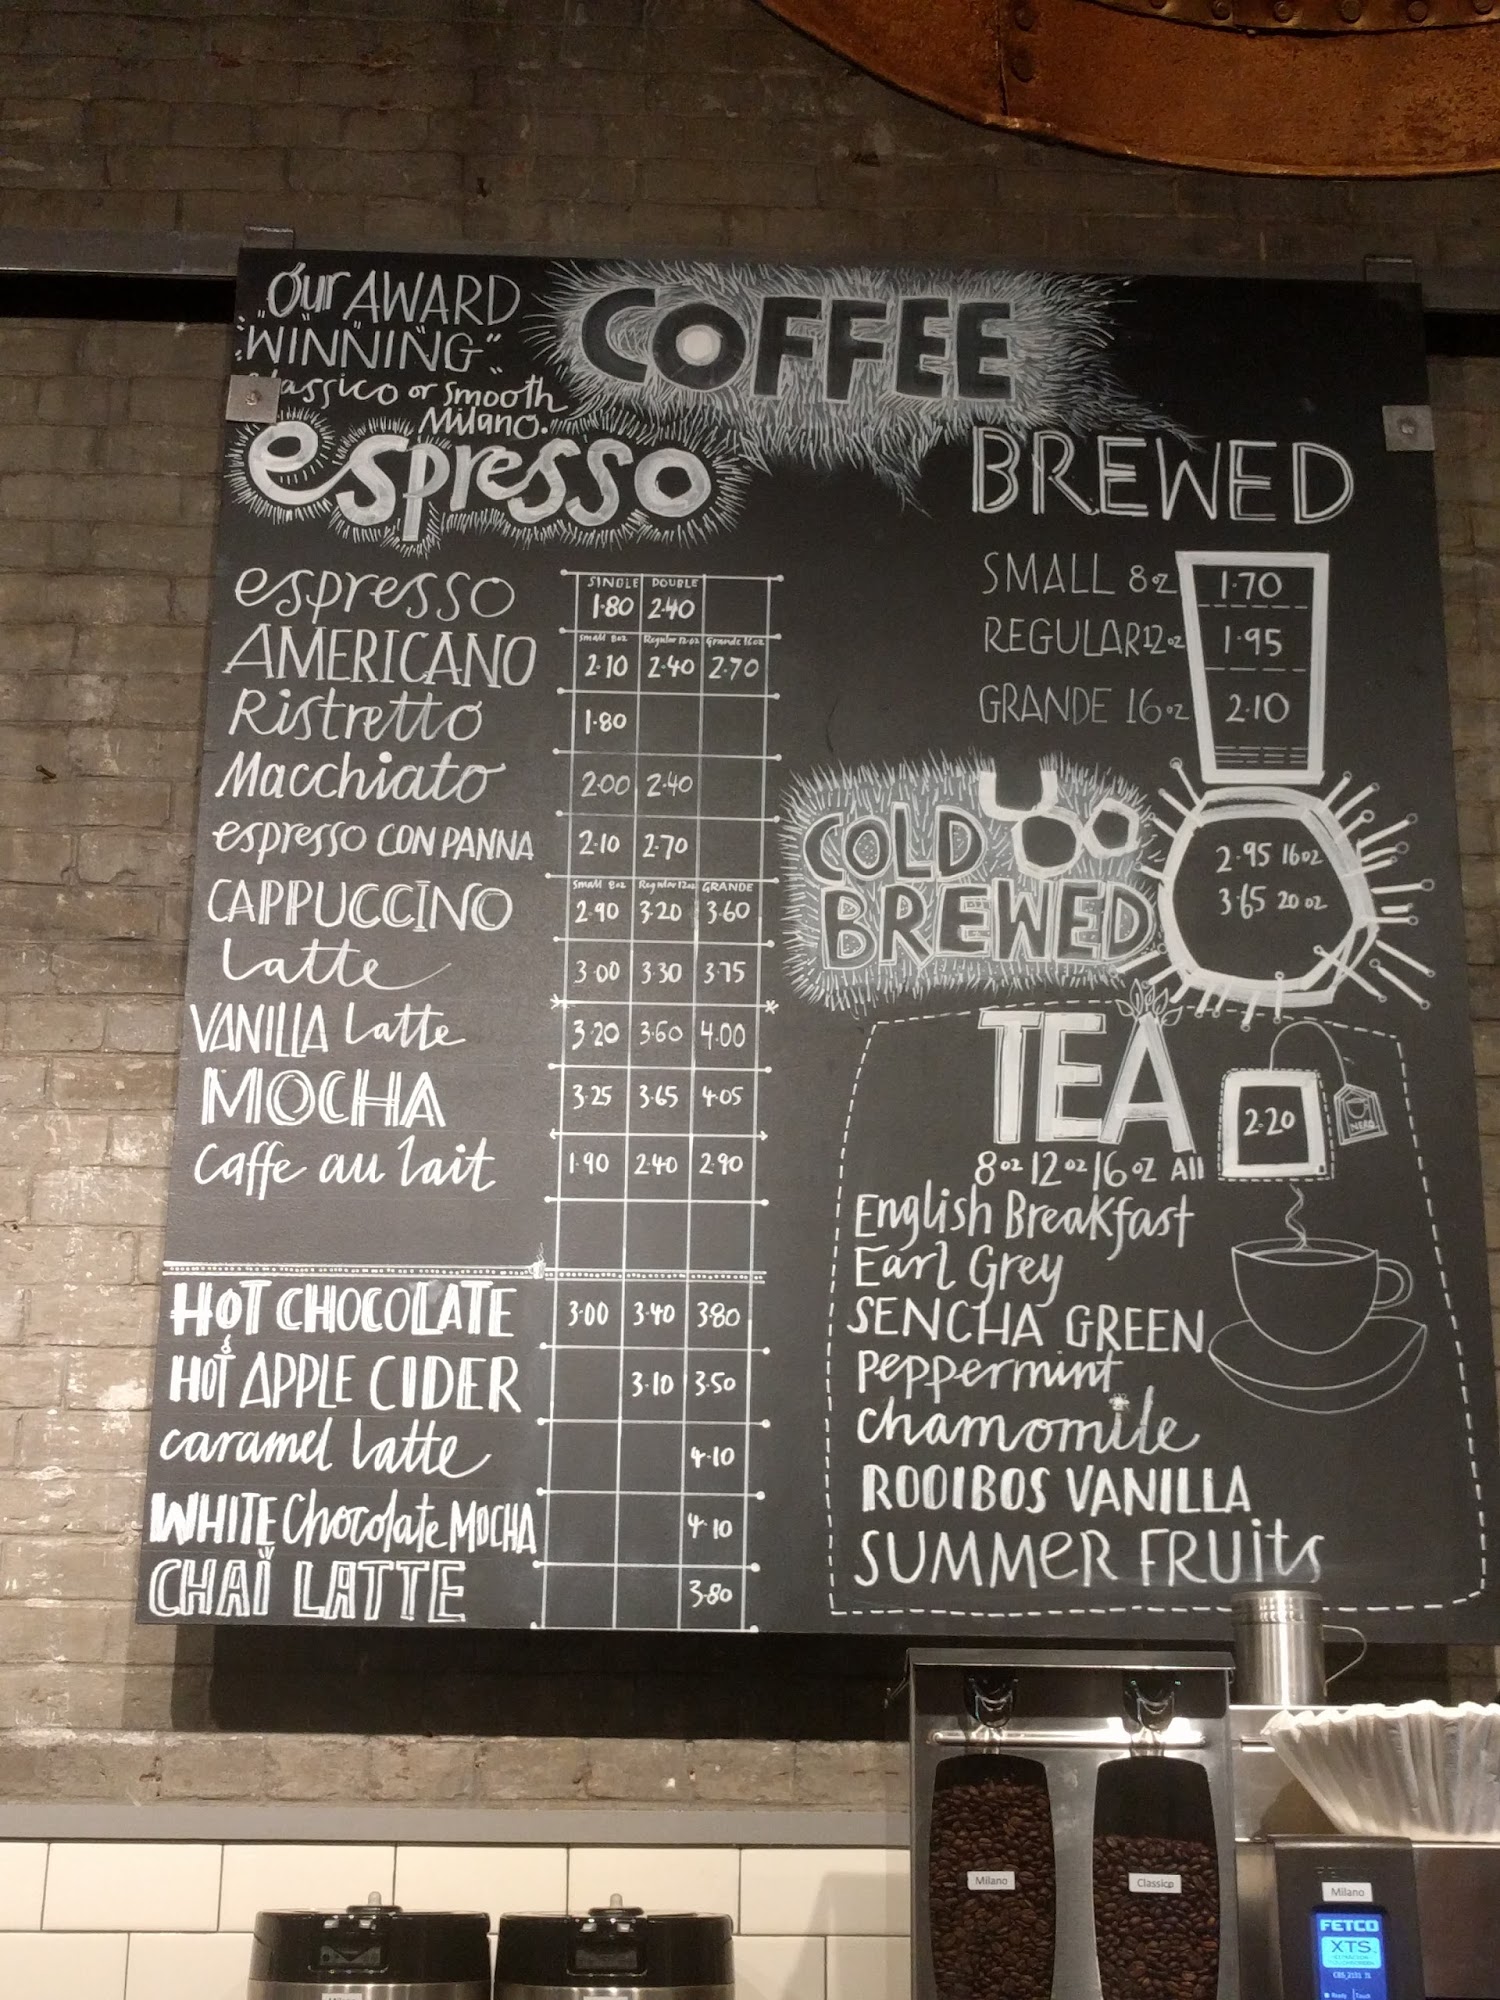 Our AWARD
"WINNING"
classico or smooth
Milano.
COFFEE
espresso
SINGLE DOUBLE
espresso 1.80 2.40
small 8oz Regular 12oz Grande 16oz
AMERICANO 2.10 2.40 2.70
Ristretto 1.80
Macchiato 2.00 2.40
espresso CON PANNA 2.10 2.70
small 8oz Regular 12oz GRANDE
CAPPUCCINO 2.90 3.20 3.60
Latte 3.00 3.30 3.75
VANILLA Latte 3.20 3.60 4.00
MOCHA 3.25 3.65 4.05
Caffe au lait 1.90 2.40 2.90
HOT CHOCOLATE 3.00 3.40 3.80
&
HOT APPLE CIDER 3.10 3.50
caramel latte 4.10
WHITE Chocolate MOCHA 4.10
CHAI LATTE 3.80
BREWED
SMALL 8oz 1.70
REGULAR 12oz 1.95
GRANDE 16oz 2.10
COLD
BREWED
2.95 16oz
3.65 20oz
TEA
2.20
NERO
8oz 12oz 16oz All
English Breakfast
Earl Grey
SENCHA GREEN
Peppermint
chamomile
ROOIBOS VANILLA
SUMMER FRUITS
Milano
Classico
Milano
FETCO
XTS